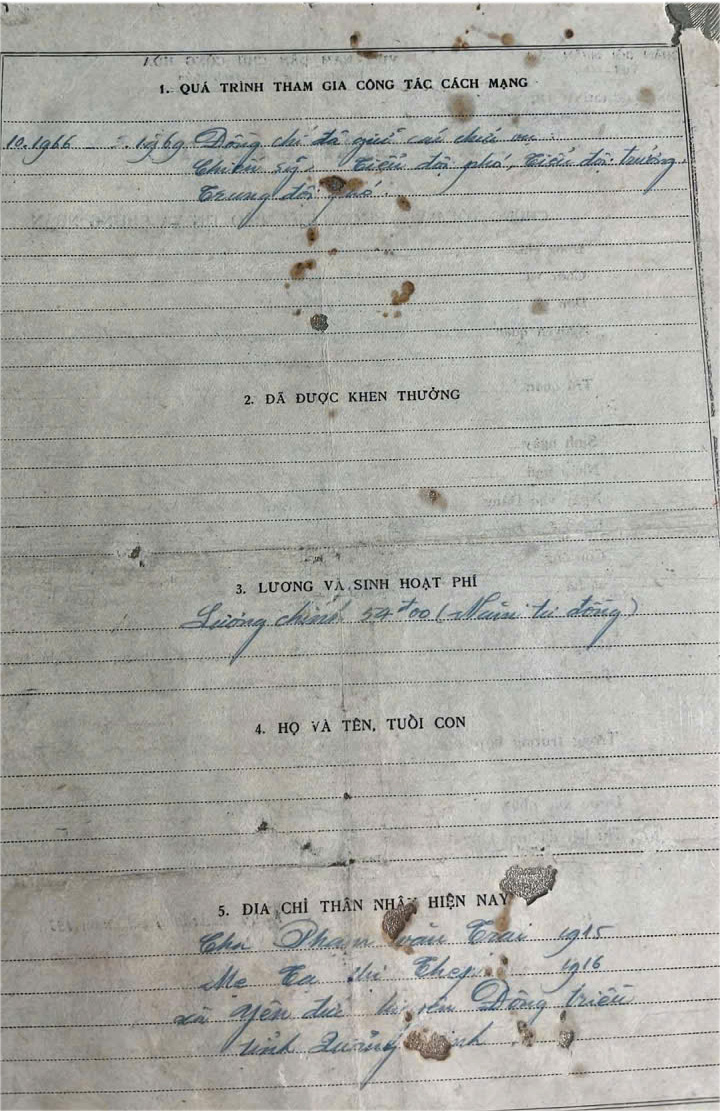 1. QUÁ TRÌNH THAM GIA CÔNG TÁC CÁCH MẠNG
10.1966 - 5.1969 Đồng chí đã giữ các chức vụ:
Chiến sỹ, Tiểu đội phó, Tiểu đội trưởng,
Trung đội phó.
2. ĐÃ ĐƯỢC KHEN THƯỞNG
3. LƯƠNG VÀ SINH HOẠT PHÍ
Lương chính 54đ00 (Năm tư đồng)
4. HỌ VÀ TÊN, TUỔI CON
5. DIA CHỈ THÂN NHÂN HIỆN NAY
Cha Phạm Văn Trai 1915
Mẹ Tạ Thị 1916
xã Yên Đức huyện Đông Triều
tỉnh Quảng Ninh